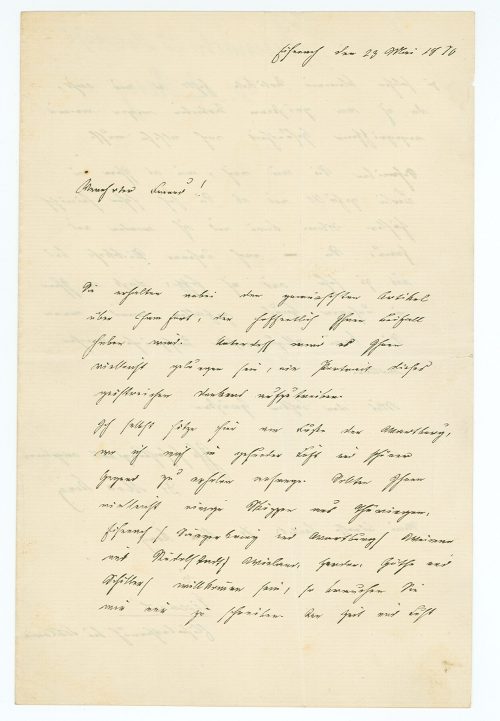 Eisenach den 23 Mai 1876
Verehrter Freund!
Sie erhalten anbei den gewünschten Artikel
über Chamfort, der hoffentlich Ihren Beifall
haben wird. Unterdeß wird es Ihnen
vielleicht gelungen sein, ein Portrait dieses
geistreichen Denkers aufzutreiben.
Ich selbst sitze hier am Fuße der Wartburg,
wo ich mich in gesunder Luft und schöner
Gegend zu erholen gedenke. Sollten Ihnen
vielleicht einige Skizzen aus Thüringen,
Eisenach / Sängerkrieg und Wartburg / Weimar
und Rudolstadt / Wieland, Herder, Göthe und
Schiller / willkommen sein, so brauchen Sie
mir nur zu schreiben. An Zeit und Lust